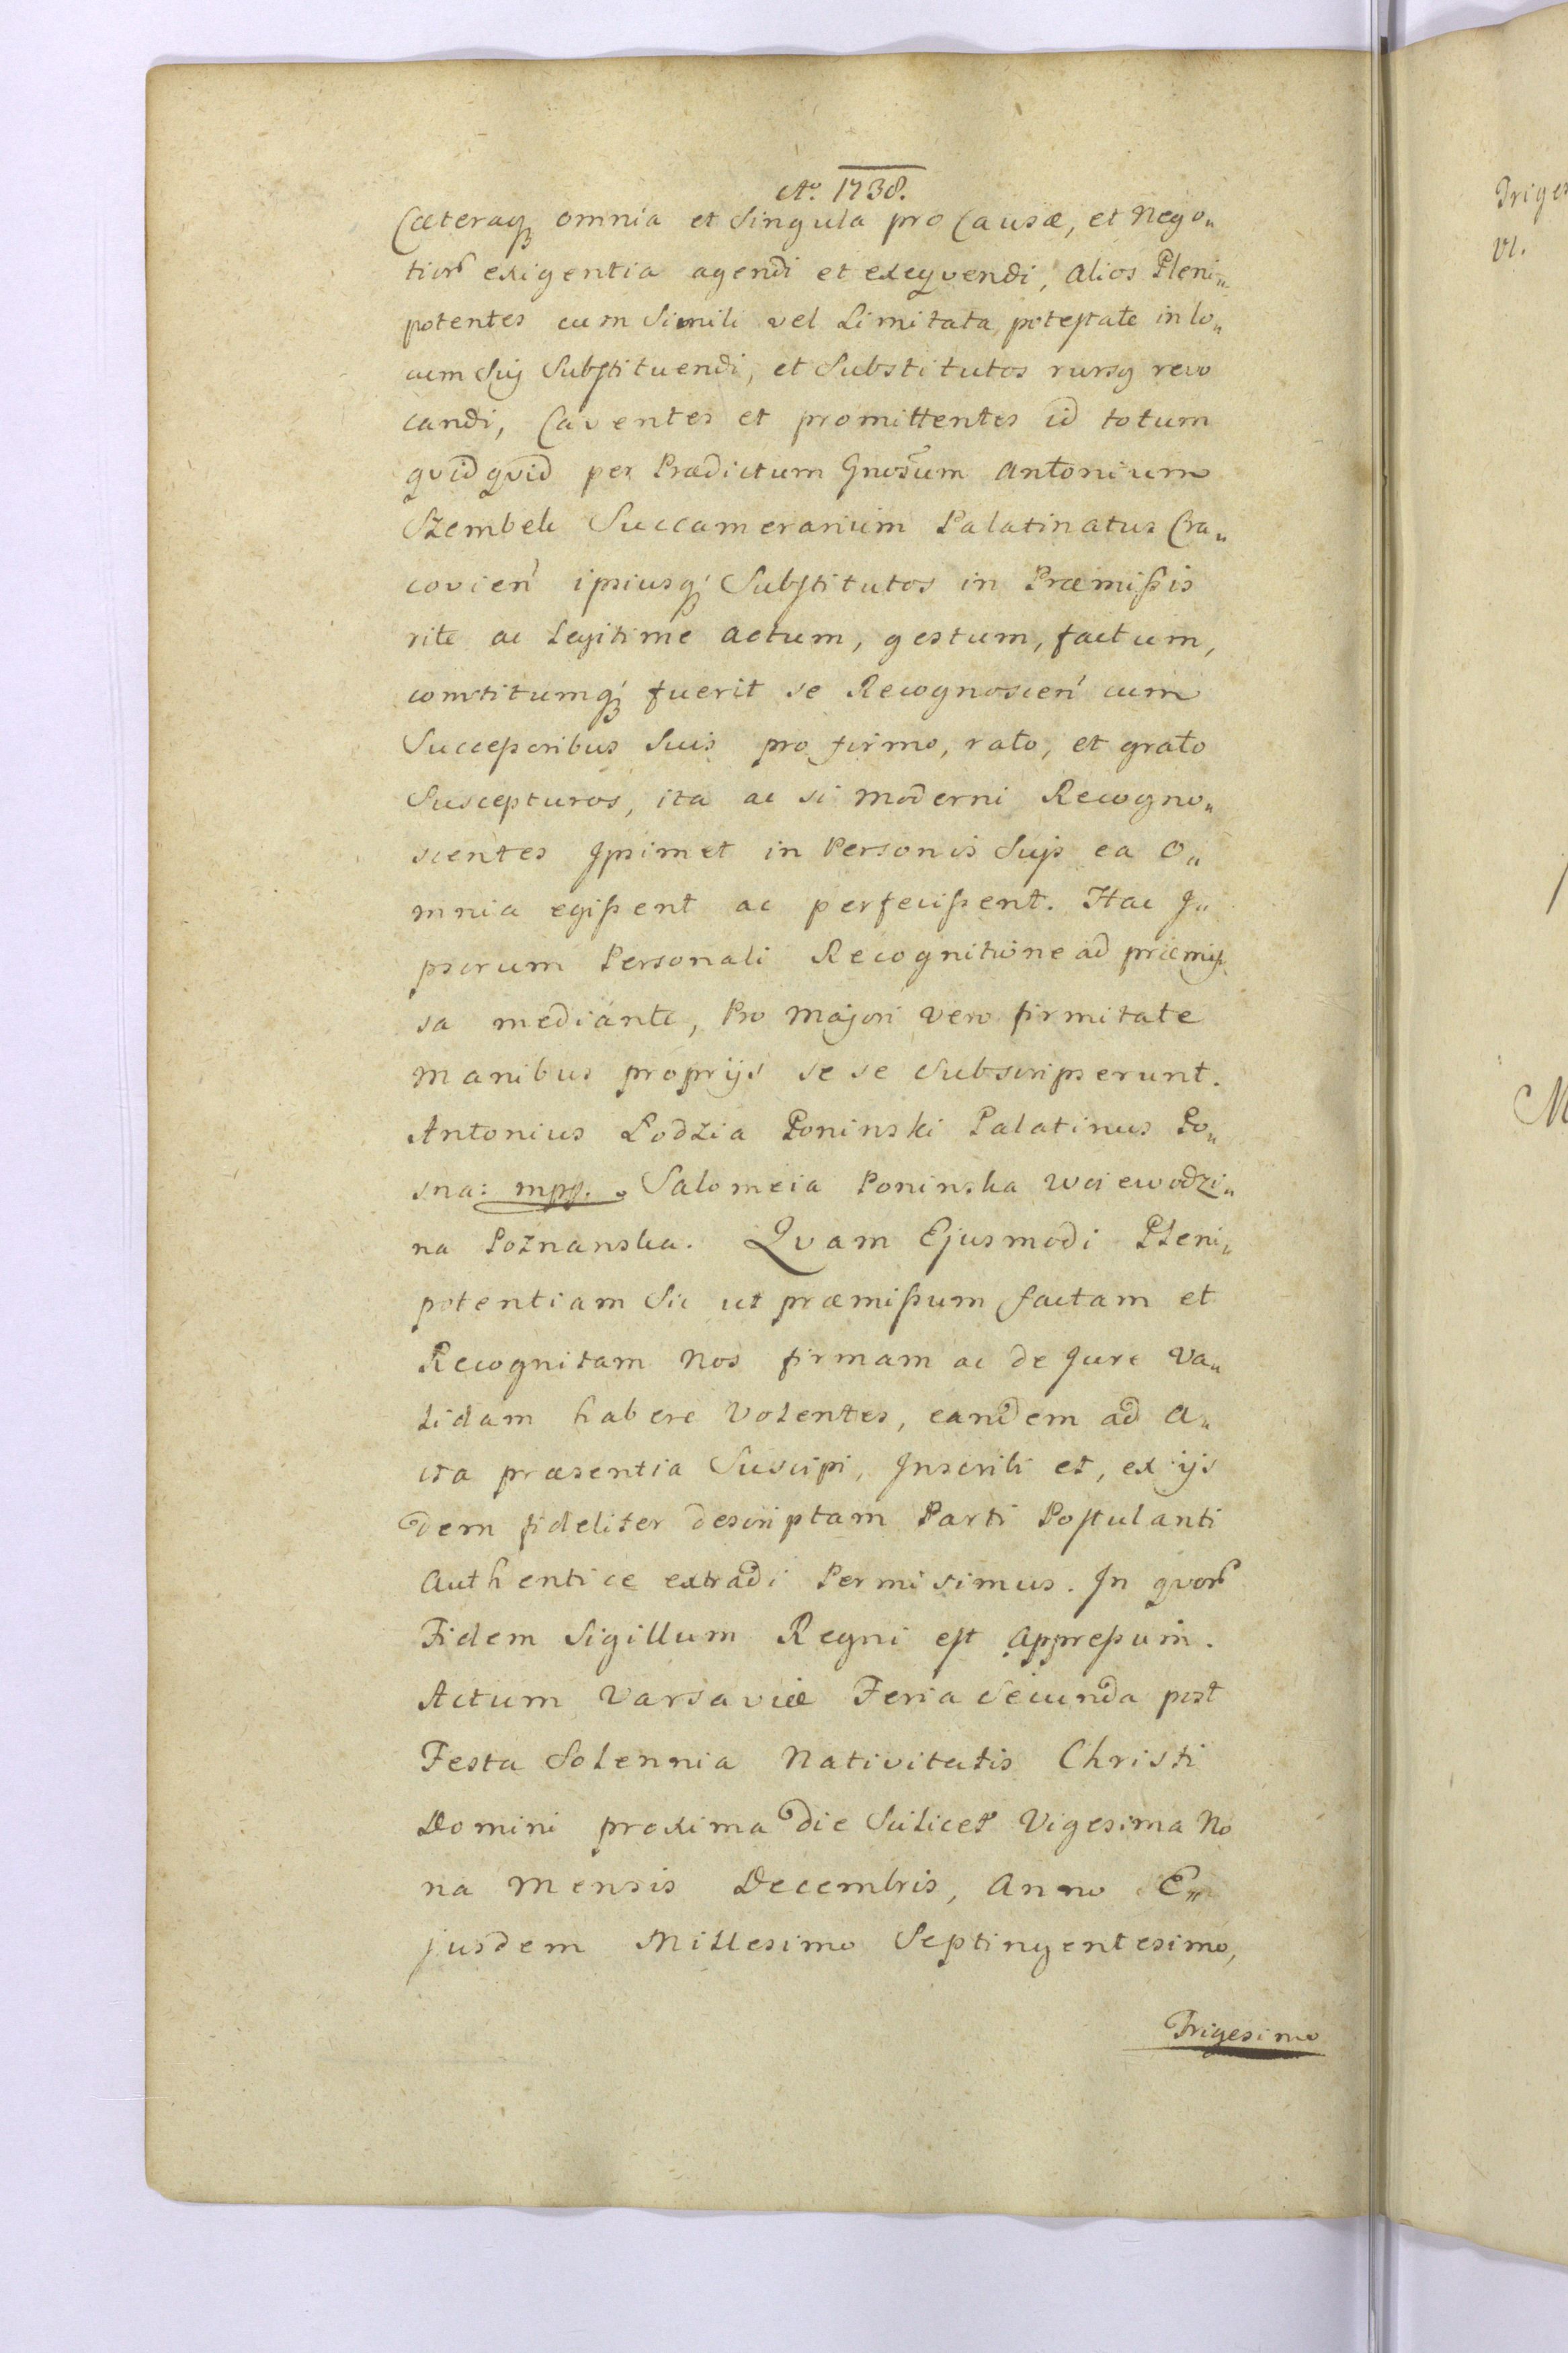 Ao. 1738.
Cæteraq; omnia et Singula pro Causæ, et Nego„
tior̃ exigentia agendi et exeqvendi, alios Pleni„
potentes cum Simili vel Limitata potestate in lo„
cum Sui Substituendi, et Substitutos rursq revo
candi, Caventes et promittentes id totum
qvidqvid per Prædictum Gnosũm Antonium
Szembek Succamerarium Palatinatus Cra„
covień ipsiusq; Substitutos in Præmißis
rite ac Legitime actum, gestum, factum,
constitumq; fuerit se Recognoscień cum
Succeßoribus Suis pro firmo, rato, et grato
Suscepturos, ita ac si moderni Recogno„
scientes Ipsimet in Personis Suis ea O„
mnia egißent ac perfecißent. Hac I„
psorum Personali Recognitione ad præmiß
sa mediante, Pro Majori vero firmitate
Manibus proprijs se se Subscripserunt.
Antonius Lodzia Poninski Palatinus Po„
sna: mpp. Salomeia Poninska Woiewodzi„
na Poznanska. Qvam Ejusmodi Pleni„
potentiam Sic ut præmißum factam et
Recognitam Nos firmam ac de Jure Va„
lidam habere Volentes, eandem ad A„
cta præsentia Suscipi, Inscribi et, ex ijs
dem fideliter descriptam Parti Postulanti
Authentice extradi Permisimus. In qvor̃
Fidem Sigillum Regni est appreßum.
Actum Varsaviæ Feria Secunda post
Festa Solennia Nativitatis Christi
Domini proxima die Scilicet Vigesima No
na Mensis Decembris, Anno E„
jusdem Millesimo Septingentesimo,
Trigesimo
Triges
VI.
M